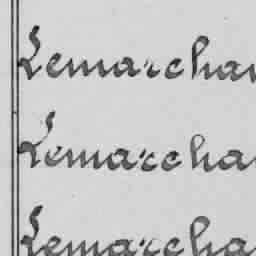 Lemarchan
Lemarcha
Lemarcha